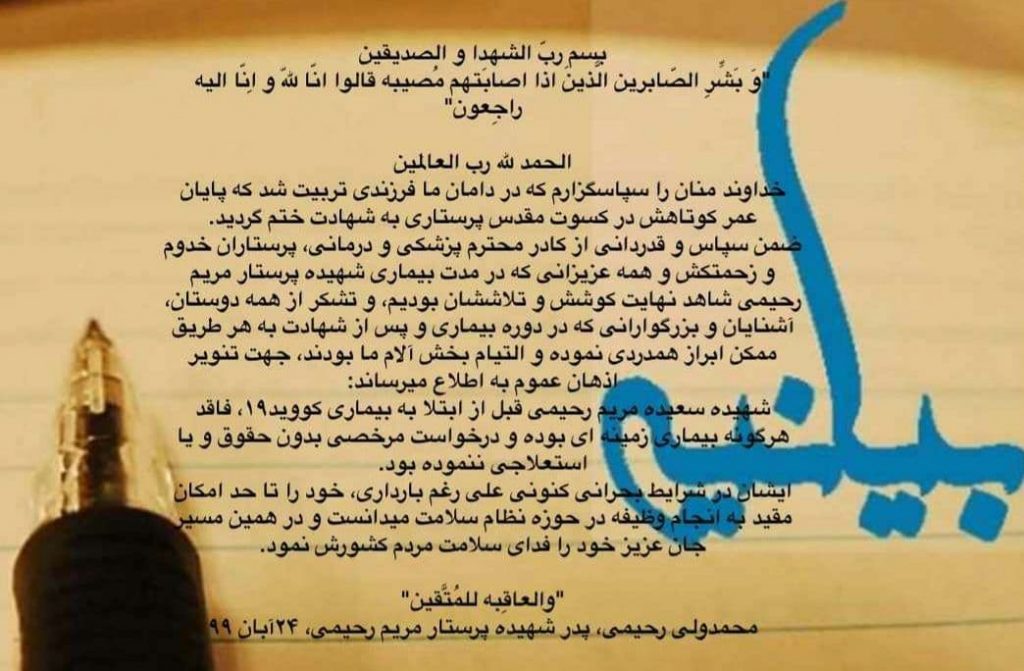 بسم ربّ الشهدا و الصدیقین
"وَ بَشِّرِ الصّابرین الَّذینَ اذا اصابَتهم مُصیبه قالوا انّا للهّ و اِنّا الیه
راجِعون"
الحمد لله رب العالمین
خداوند منان را سپاسگزارم که در دامان ما فرزندی تربیت شد که پایان
عمر کوتاهش در کسوت مقدس پرستاری به شهادت ختم گردید.
ضمن سپاس و قدردانی از کادر محترم پزشکی و درمانی، پرستاران خدوم
و زحمتکش و همه عزیزانی که در مدت بیماری شهیده پرستار مریم
رحیمی شاهد نهایت کوشش و تلاششان بودیم، و تشکر از همه دوستان،
آشنایان و بزرگوارانی که در دوره بیماری و پس از شهادت به هر طریق
ممکن ابراز همدردی نموده و التیام بخش آلام ما بودند، جهت تنویر
اذهان عموم به اطلاع میرساند:
شهیده سعیده مریم رحیمی قبل از ابتلا به بیماری کووید۱۹، فاقد
هرگونه بیماری زمینه ای بوده و درخواست مرخصی بدون حقوق و یا
استعلاجی ننموده بود.
ایشان در شرایط بحرانی کنونی علی رغم بارداری، خود را تا حد امکان
مقید به انجام وظیفه در حوزه نظام سلامت میدانست و در همین مسیر
جان عزیز خود را فدای سلامت مردم کشورش نمود.
"والعاقِبه للمُتَّقین"
محمدولی رحیمی، پدر شهیده پرستار مریم رحیمی، ۲۴آبان ۹۹
بیانیه